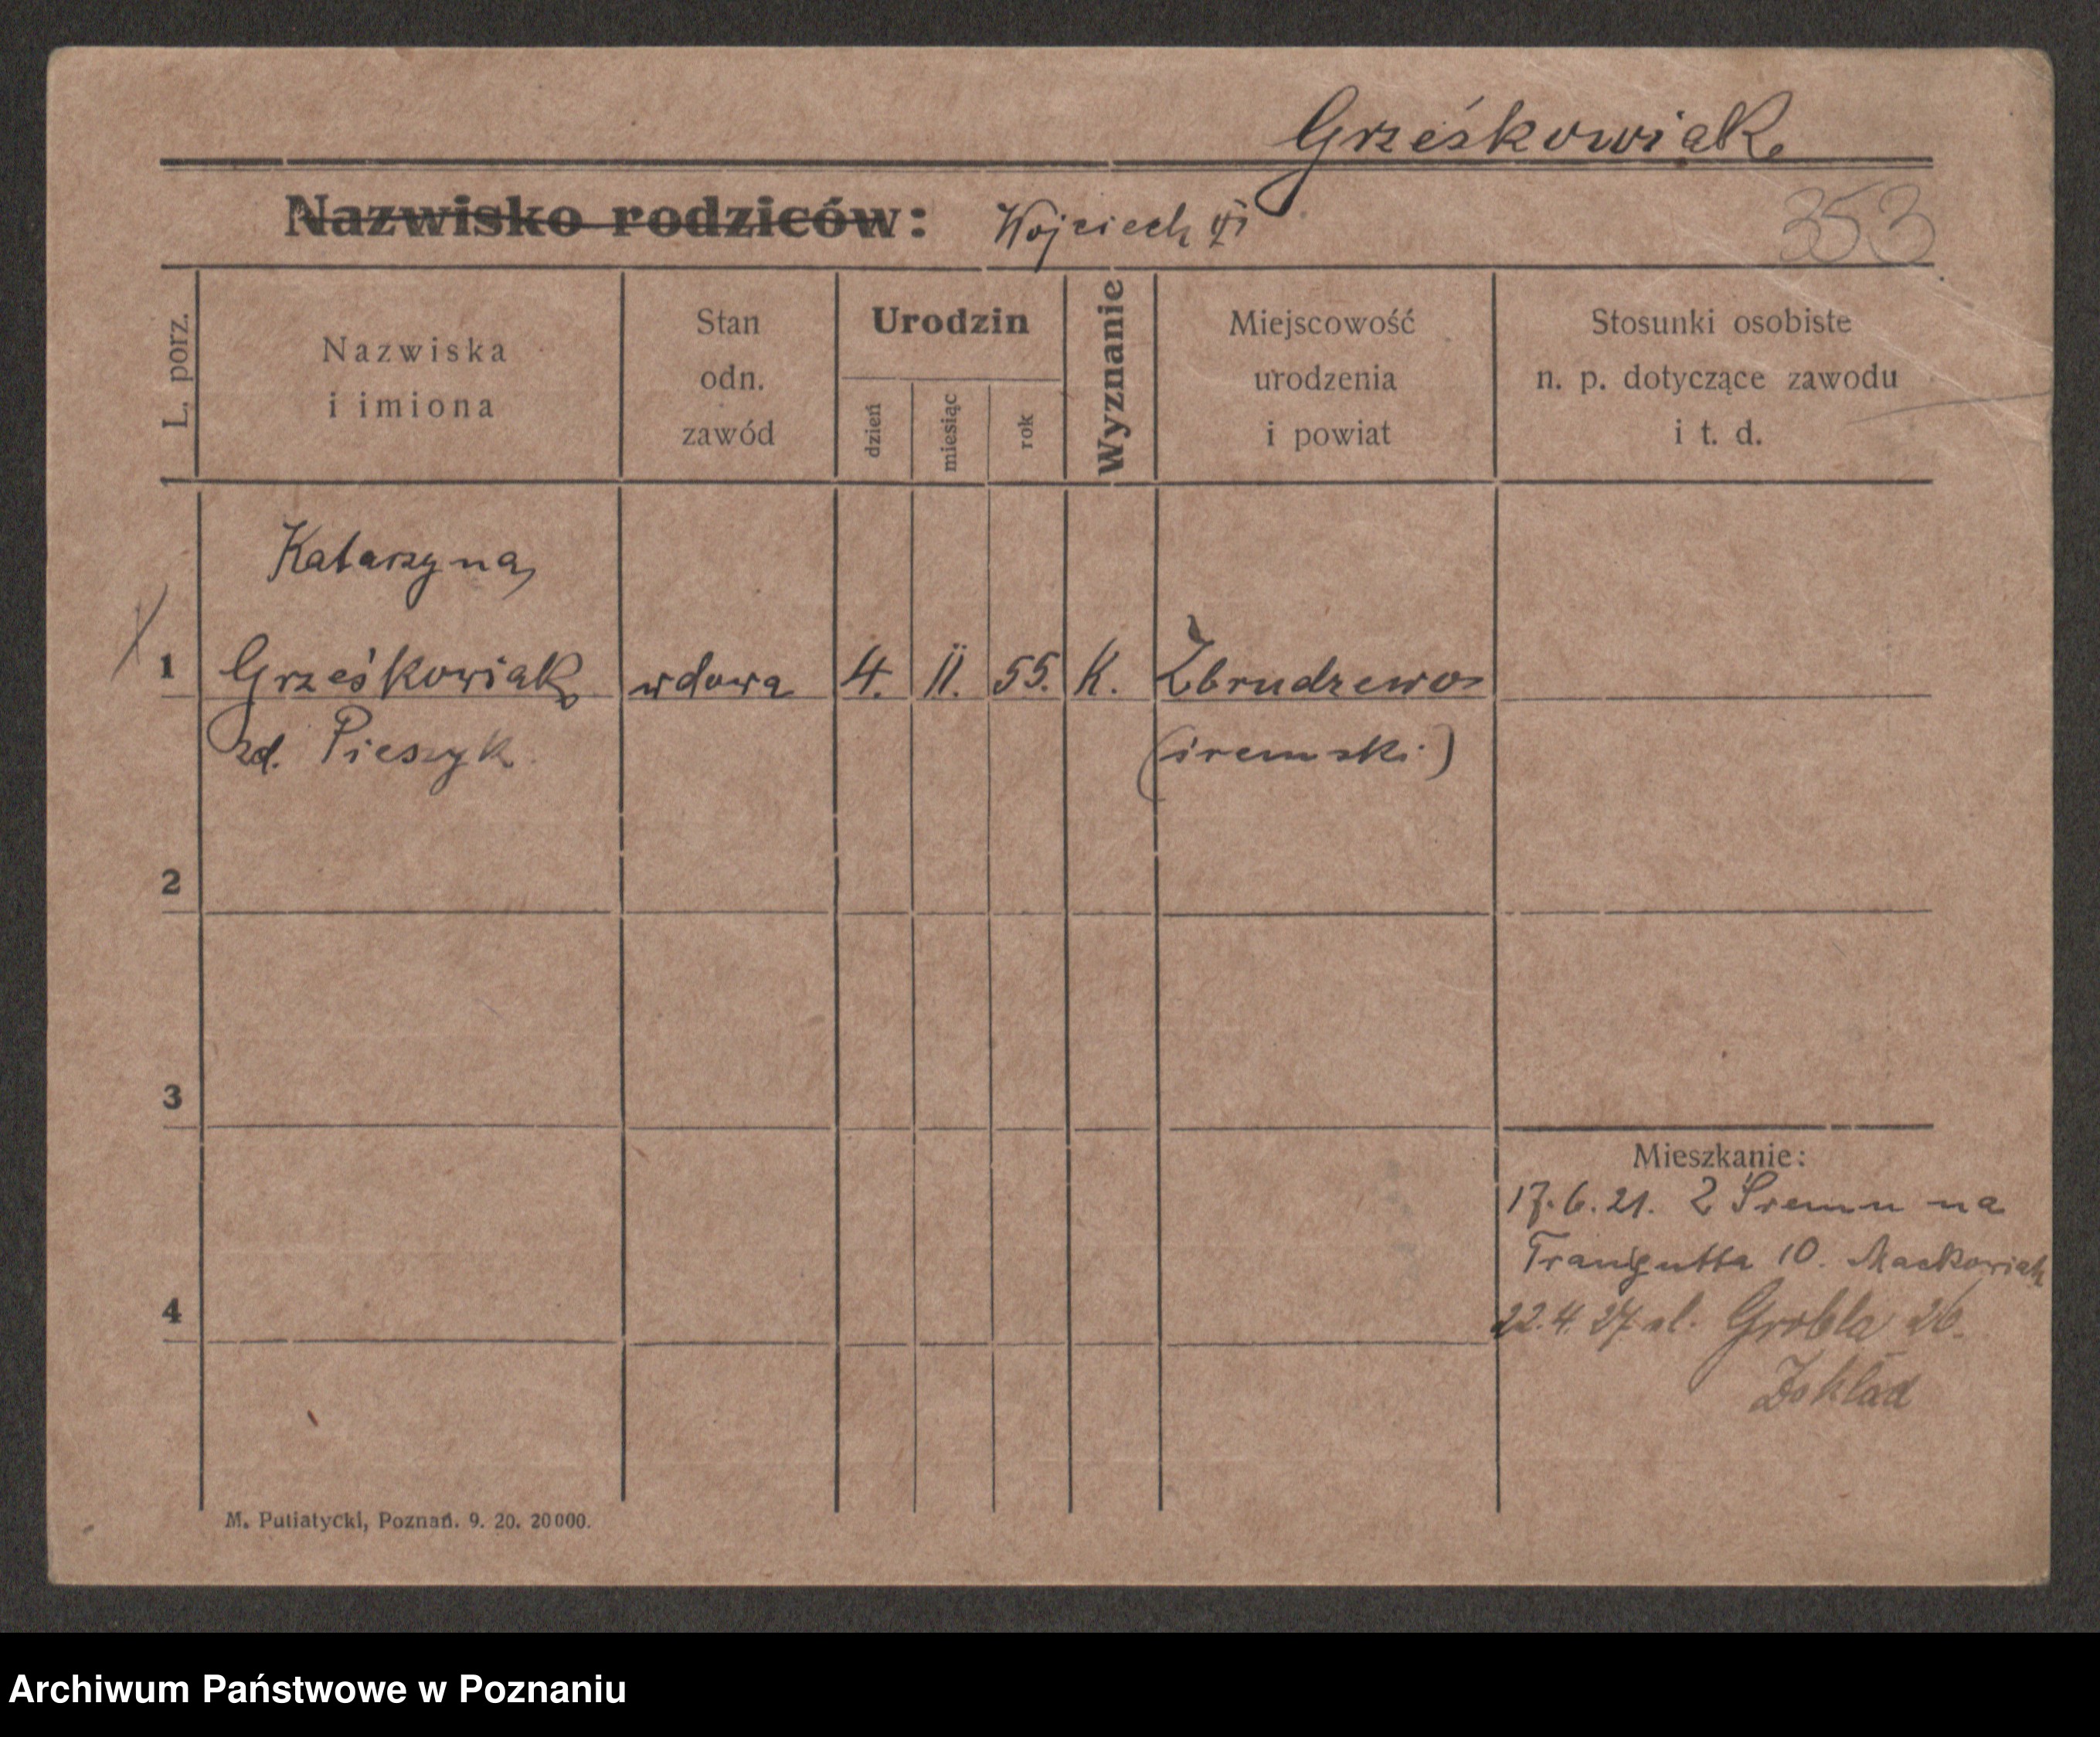 Grześkowiak
Nazwisko rodziców: Wojciech
353
L. porz.
Nazwiska
i imiona
Stan
odn.
zawód
Urodzin
dzień
miesiąc
rok
Wyznanie
Miejscowość
urodzenia
i powiat
Stosunki osobiste
n. p. dotyczące zawodu
i t. d.
Katarzyna
1 Grześkowiak wdowa 4. II. 55. K. Zbrudzewo
zd. Pieszyk (śremski)
2
3
4
Mieszkanie:
17.6.21. Z Śremu na
Traugutta 10. Maćkowiak
22.4.27 ul. Grobla 26.
Zakład
M. Putiatycki, Poznań. 9. 20. 20000.
Archiwum Państwowe w Poznaniu